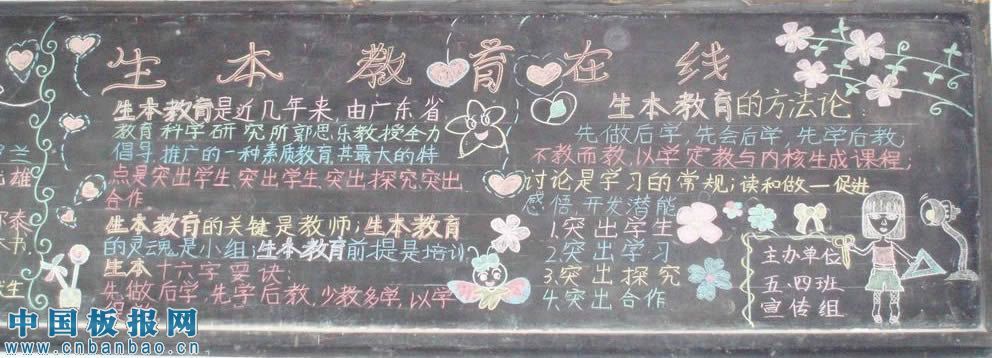 生本教育在线
兰
雄
泰
书
生
生本教育是近几年来,由广东省
教育科学研究所郭思乐教授全力
倡导、推广的一种素质教育.其最大的特
点是突出学生、突出学生、突出探究、突出
合作
生本教育的关键是教师;生本教育
的灵魂是小组;生本教育前提是培训
生本十六字要诀:
先做后学,先学后教,少教多学,以学
生本教育的方法论:
先做后学 先会后学 先学后教
不教而教,以学定教与内核生成课程;
讨论是学习的常规;读和做—促进
感悟 开发潜能
1.突出学生
2.突出学习
3.突出探究
4.突出合作
主办单位
五.四班
宣传组
中国板报网
www.cnbanbao.cn